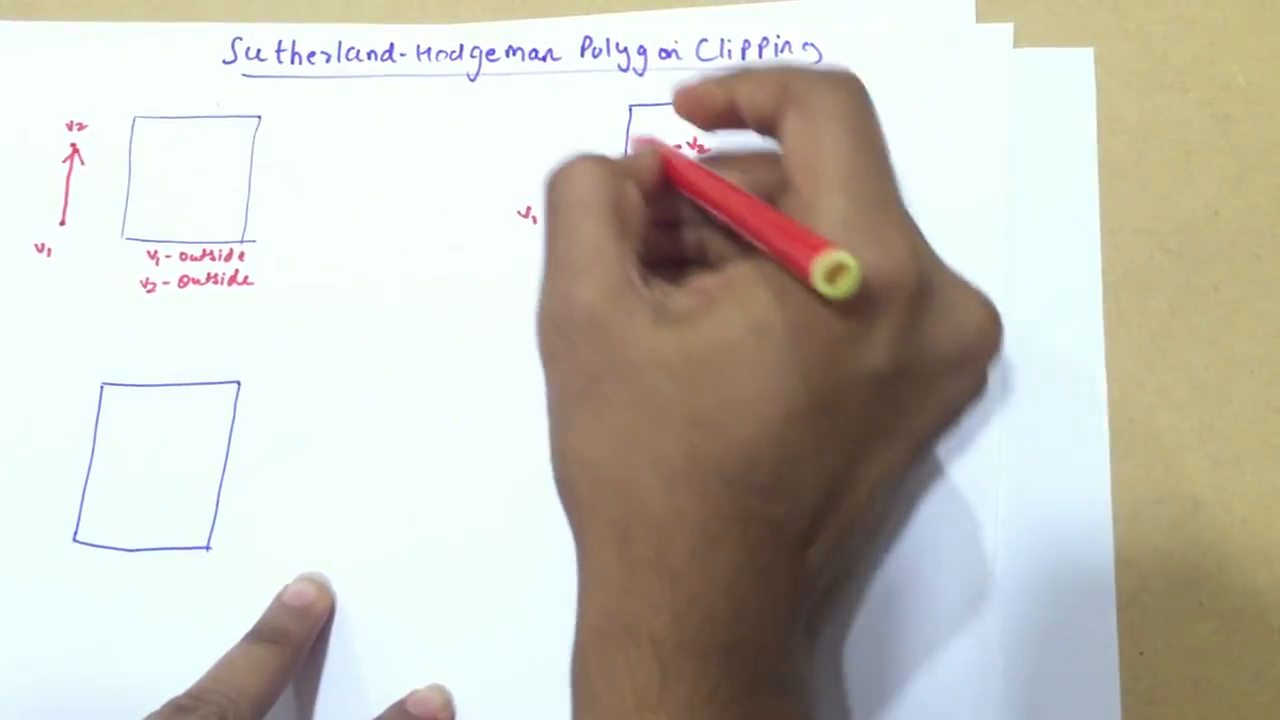 Sutherland-Hodgeman Polygon Clipping
v2
v1
v1 - outside
v2 - outside
v2
v1